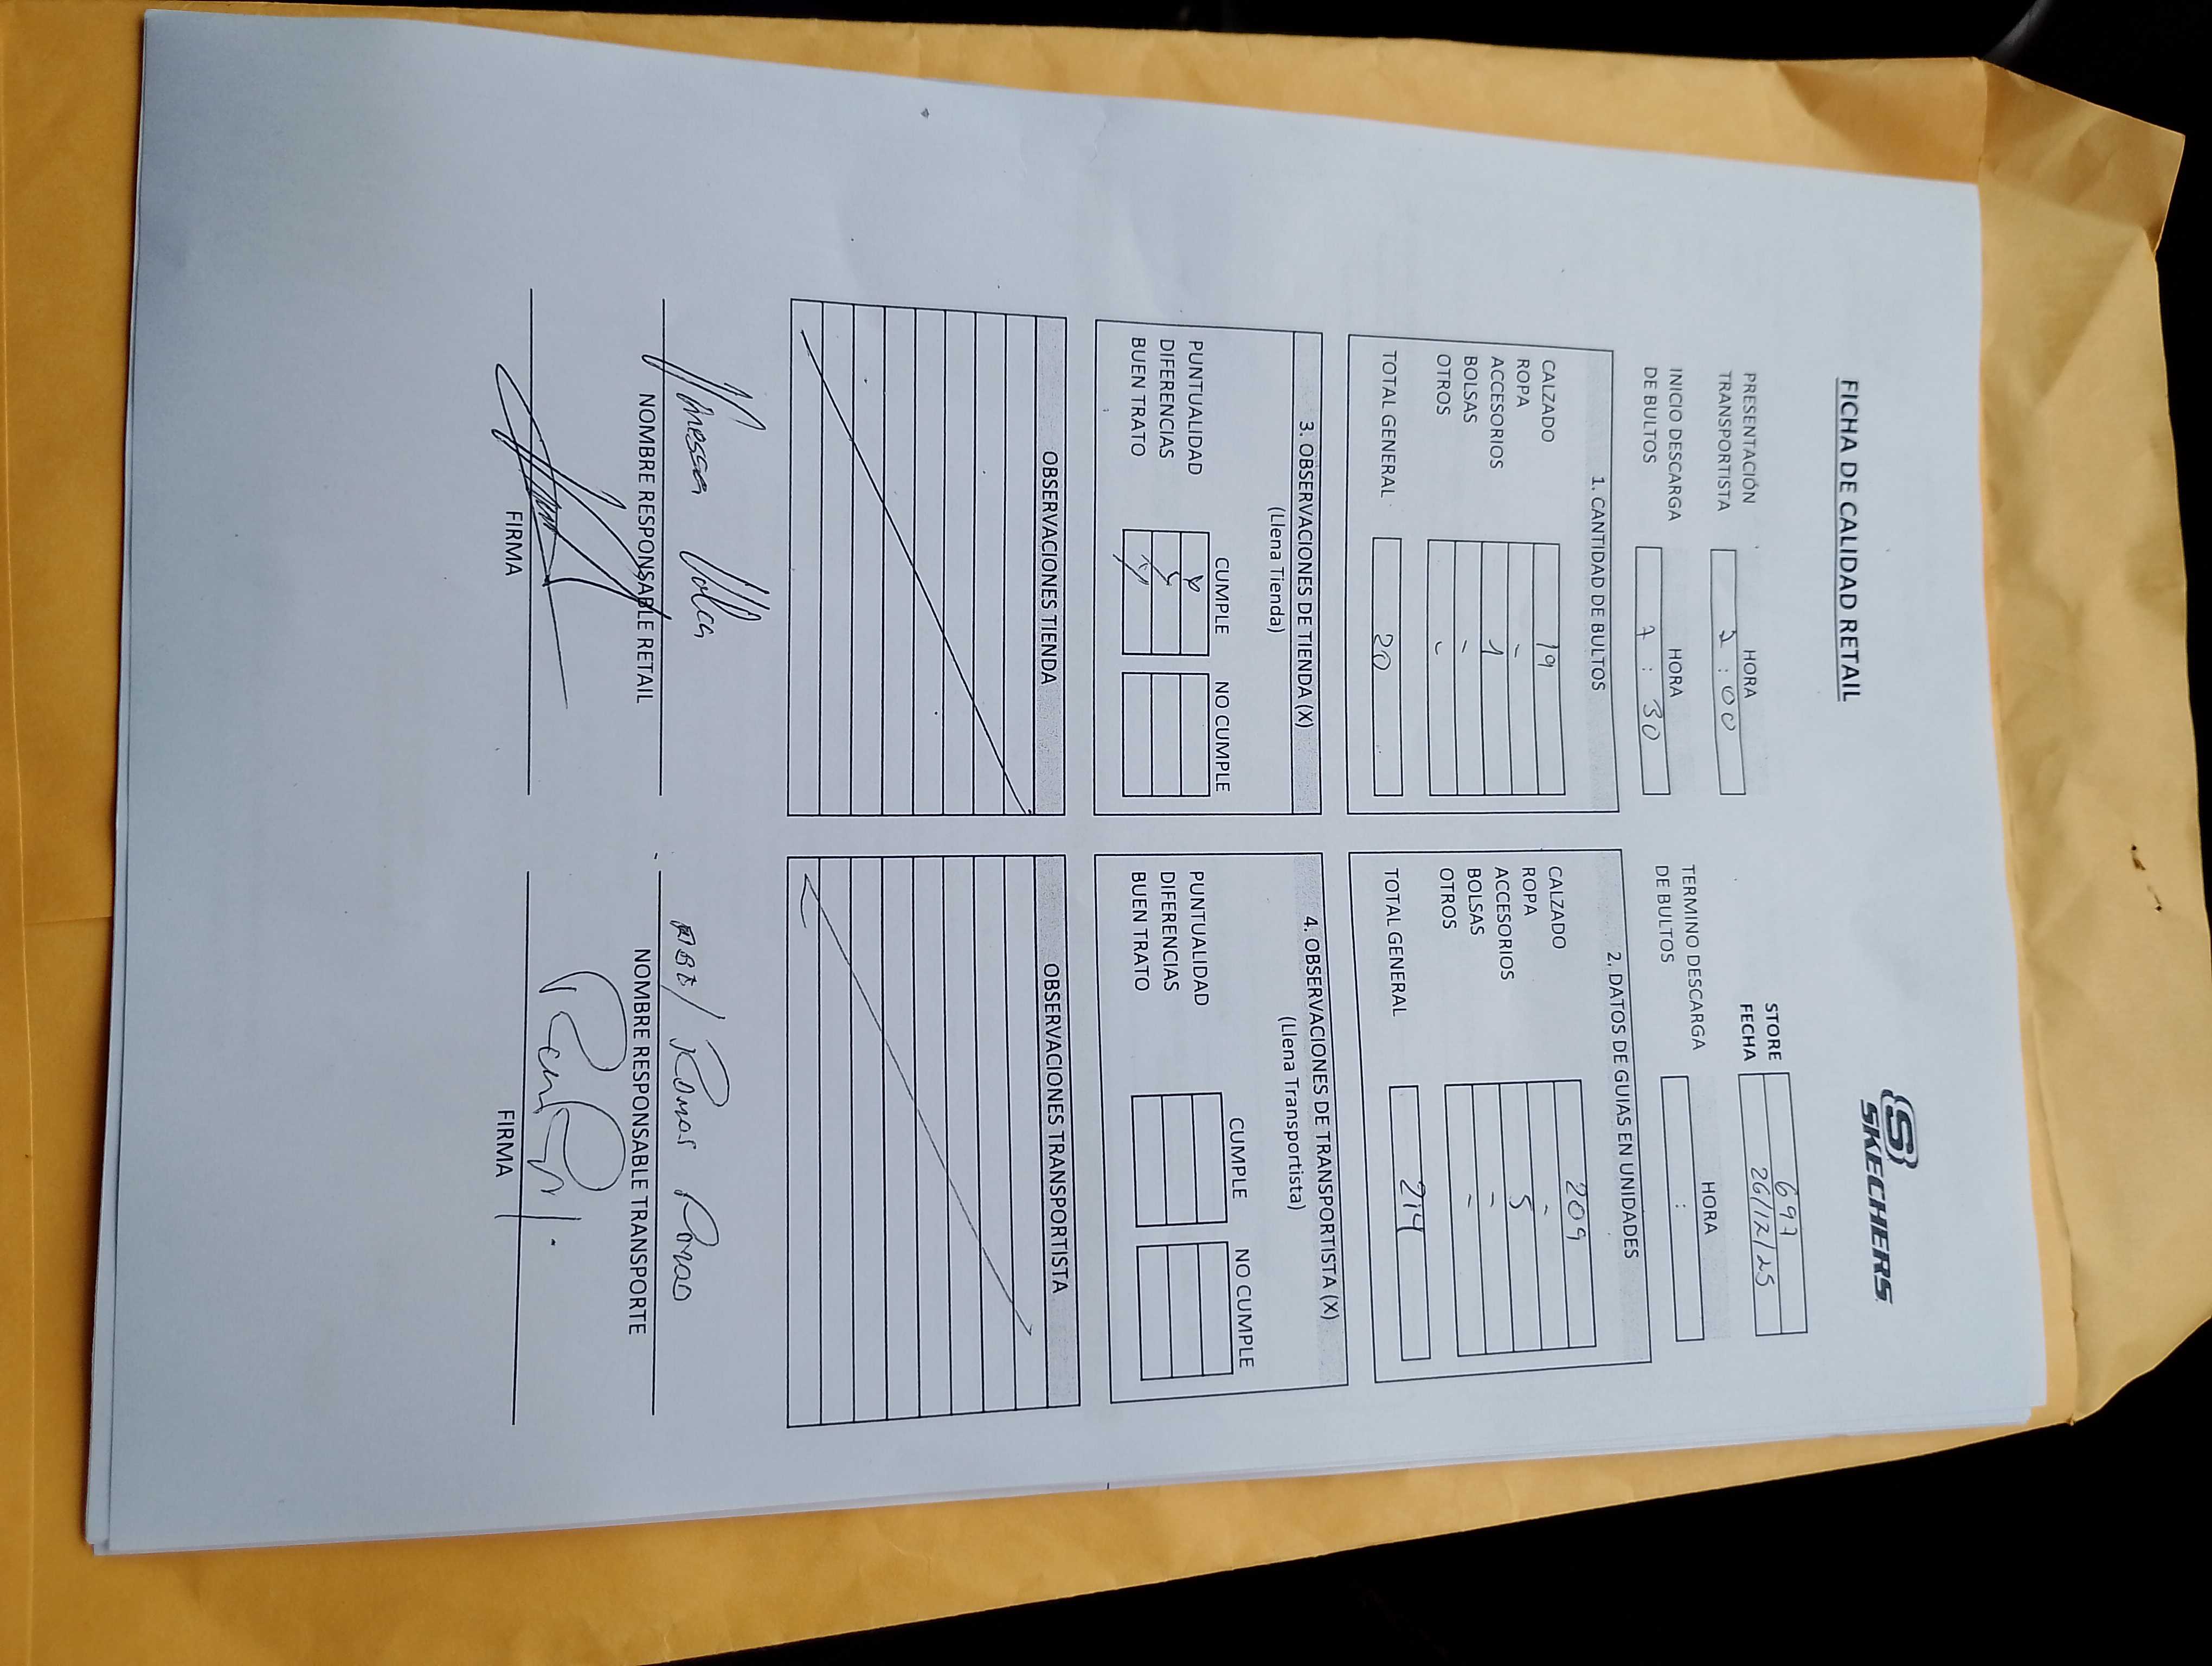 SKECHERS
FICHA DE CALIDAD RETAIL
STORE 697
FECHA 26/12/25
HORA
PRESENTACIÓN
TRANSPORTISTA : 00
HORA
INICIO DESCARGA
DE BULTOS 7 : 30
HORA
TERMINO DESCARGA
DE BULTOS :
1. CANTIDAD DE BULTOS
CALZADO 19
ROPA -
ACCESORIOS 1
BOLSAS -
OTROS -
TOTAL GENERAL 20
2. DATOS DE GUIAS EN UNIDADES
CALZADO 209
ROPA -
ACCESORIOS 5
BOLSAS -
OTROS -
TOTAL GENERAL 214
3. OBSERVACIONES DE TIENDA (X)
(Llena Tienda)
CUMPLE NO CUMPLE
PUNTUALIDAD X
DIFERENCIAS X
BUEN TRATO X
4. OBSERVACIONES DE TRANSPORTISTA (X)
(Llena Transportista)
CUMPLE NO CUMPLE
PUNTUALIDAD
DIFERENCIAS
BUEN TRATO
OBSERVACIONES TIENDA
OBSERVACIONES TRANSPORTISTA
NOMBRE RESPONSABLE RETAIL
FIRMA
Ramos
NOMBRE RESPONSABLE TRANSPORTE
FIRMA